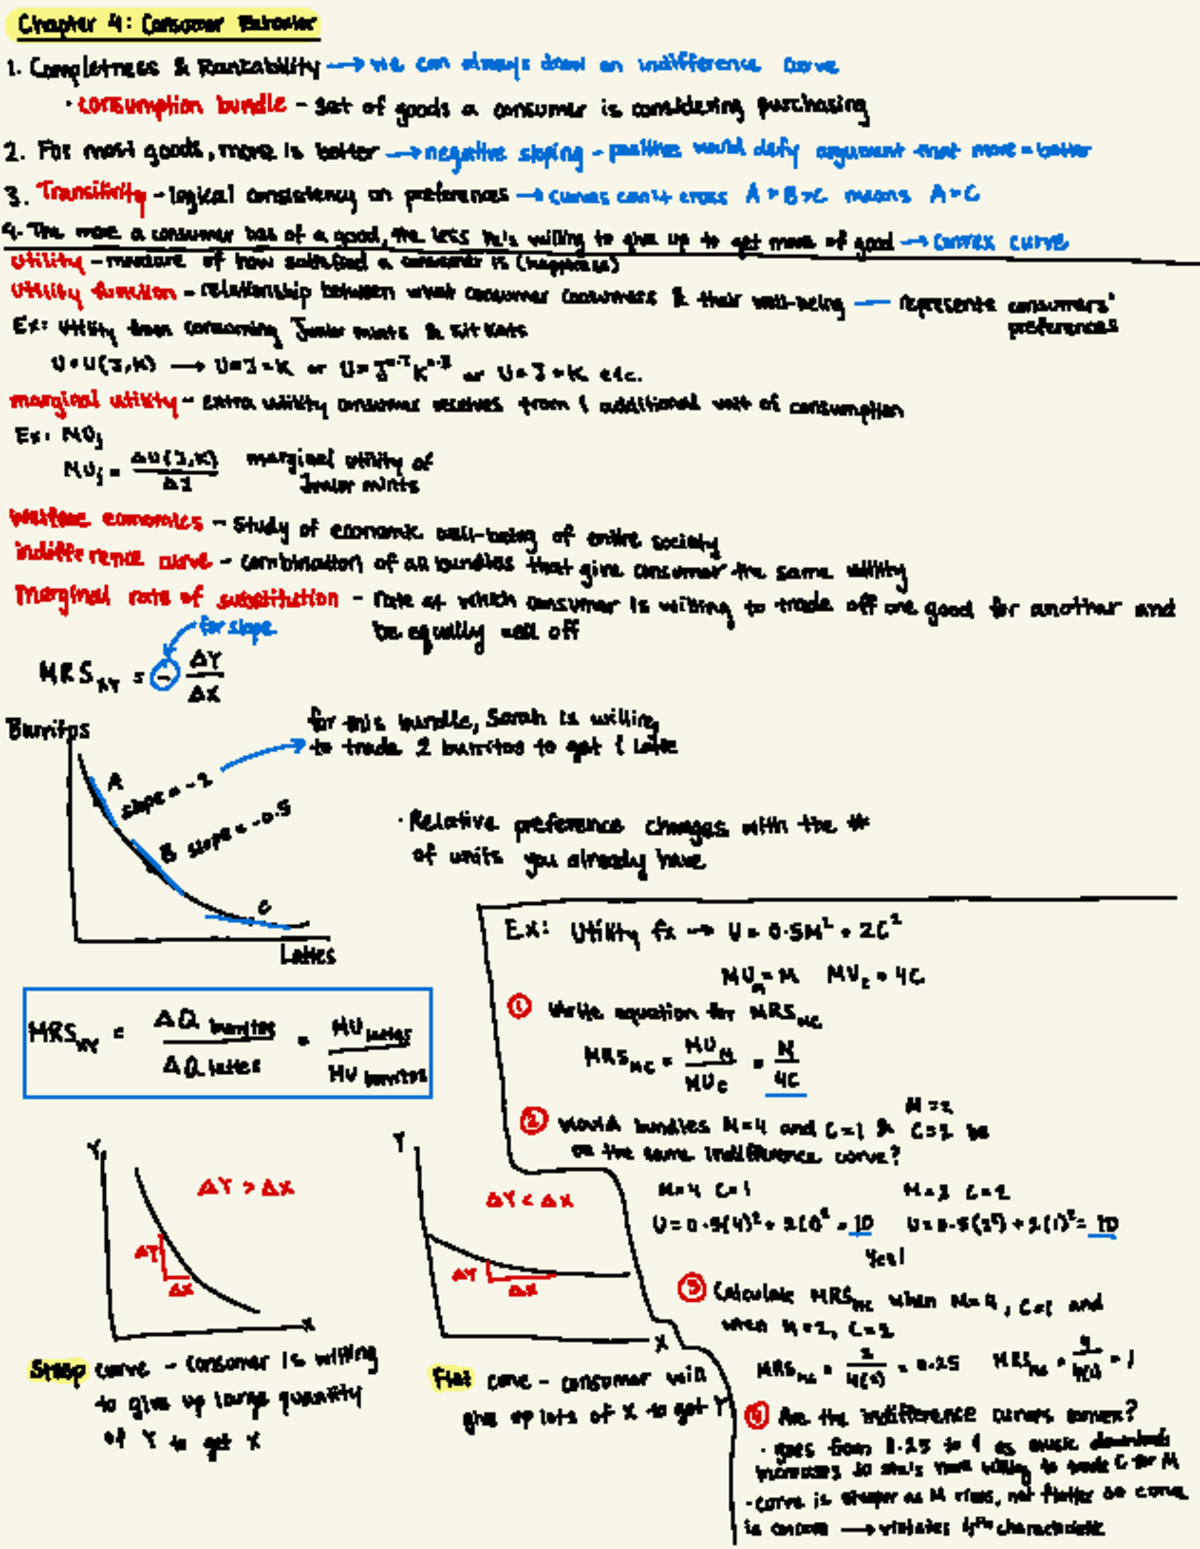 Chapter 4: Consumer Behavior
1. Completness & Rankability → we can always draw an indifference curve
· consumption bundle - set of goods a consumer is considering purchasing
2. For most goods, more is better → negative sloping - positive would defy argument that more = better
3. Transitivity - logical consistency on preferences → curves can't cross A > B > C means A > C
4. The more a consumer has of a good, the less he's willing to give up to get more of good → convex curve
Utility - measure of how satisfied a consumer is (happiness)
Utility function - relationship between what consumer consumers & their well-being — represents consumers'
preferences
Ex: Utility from consuming Junior mints & Kit Kats
U = U(J,K) → U = J · K or U = J K or U = J + K etc.
marginal utility - extra utility consumer receives from 1 additional unit of consumption
Ex: MUj
MUj = ΔU(J,K) / ΔJ marginal utility of
Junior mints
welfare economics - study of economic well-being of entire society
indifference curve - combination of all bundles that give consumer the same utility
Marginal rate of substitution - rate at which consumer is willing to trade off one good for another and
be equally well off
for slope
MRS XY = - ΔY / ΔX
Burritos
for this bundle, Sarah is willing
to trade 2 burritos to get 1 latte
A slope = -2
B slope = -0.5
C
Lattes
· Relative preference changes with the #
of units you already have
MRS XY = ΔQ burritos / ΔQ lattes = MU lattes / MU burritos
Y
ΔY > ΔX
ΔY
ΔX
X
Steep curve - consumer is willing
to give up large quantity
of Y to get X
Y
ΔY < ΔX
ΔY
ΔX
X
Flat curve - consumer will
give up lots of X to get Y
Ex: Utility fx → U = 0.5M² + 2C²
MU M = M MU C = 4C
① Write equation for MRS MC
MRS MC = MU M / MU C = M / 4C
② Would bundles M=4 and C=1 & M=2 C=2 be
on the same indifference curve?
M=4 C=1 C=2
U = 0.5(4)² + 2(1)² = 10 U = 0.5(2²) + 2( )² = 10
Yes!
③ Calculate MRS MC when M=4, C=1 and
when M=2, C=2
MRS MC = 2 / 4(2) = 0.25 MRS MC = 4 / 4(1) = 1
④ Are the indifference curves convex?
· goes from 0.25 to 1 as music downloads
increases so she's more willing to trade C for M
· curve is steeper as M rises, not flatter so curve
is concave → violates 4th characteristic